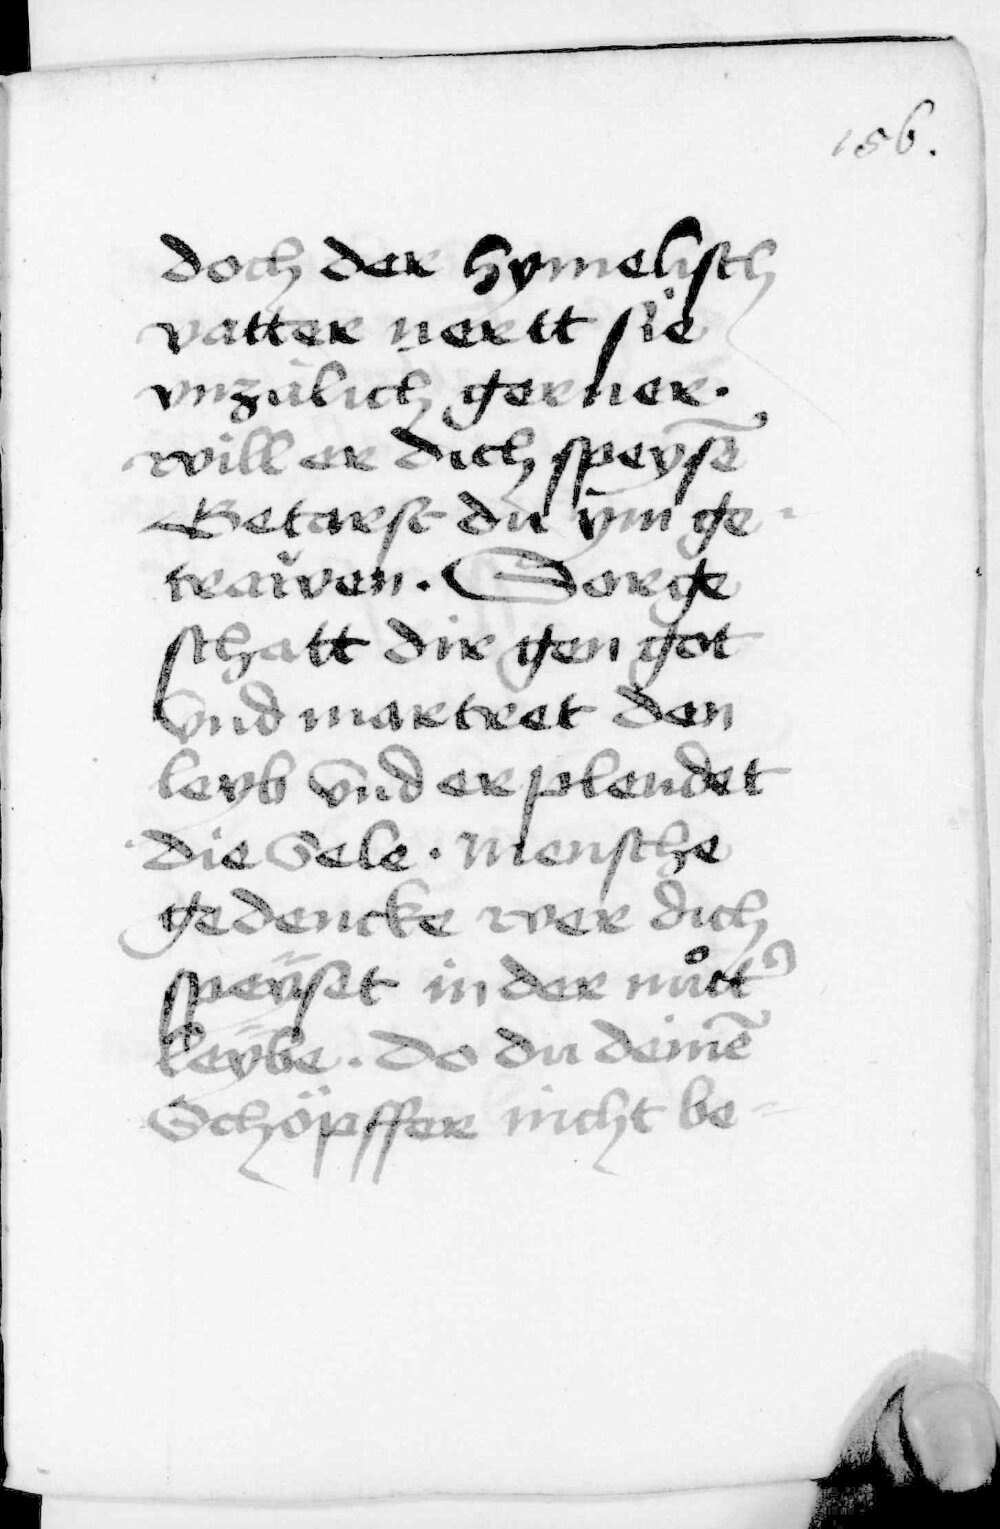 156.
doch der hymelisch
vatter nertt sie
vnzälich gerner.
will er dich speysē
Getarst du ym ge-
traẅen. Sorge
schatt dir gen got
vnd martret den
leyb vnd erplendet
die Sele. Mensche
gedencke wer dich
speÿset in der můtt᾽
leÿbe. do du deinē
Schöpffer nicht be-